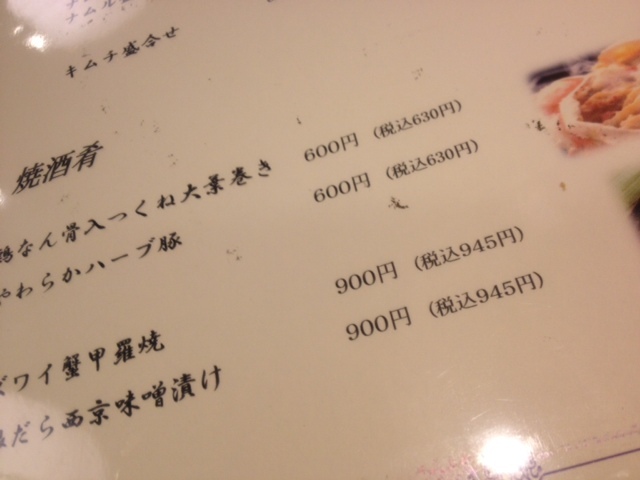 キムチ盛合せ
焼酒肴
鶏なん骨入つくね大葉巻き 600円 (税込630円)
やわらかハーブ豚 600円 (税込630円)
ズワイ蟹甲羅焼 900円 (税込945円)
だら西京味噌漬け 900円 (税込945円)